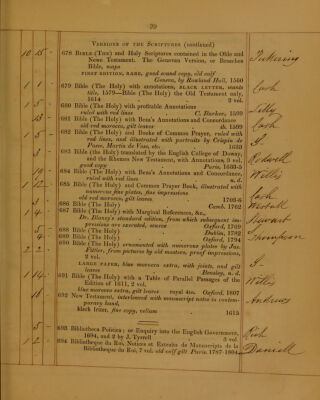 39
VERSIONS OF THE SCRIPTURES (continued)
10 15 - 678 BIBLE (THE) and Holy Scriptures conteined in the Olde and Newe Testament. The Genevan Version, or Breeches Bible, maps Pickering
FIRST EDITION, RARE, good sound copy, old calf
Geneva, by Rowland Hall, 1560
1 1 - 679 Bible (The Holy) with annotations, BLACK LETTER, wants title, 1579—Bible (The Holy) the Old Testament only, 1614 2 vol. Cash
680 Bible (The Holy) with profitable Annotations Lilly
ruled with red lines C. Barker, 1599
681 Bible (The Holy) with Beza's Annotations and Concordance Cash
old red morocco, gilt leaves ib. 1599
682 Bible (The Holy) and Booke of Common Prayer, ruled with red lines, and illustrated with portraits by Crispin de Passe, Martin de Vos, etc. 1633
683 Bible (the Holy) translated by the English College of Doway and the Rhemes New Testament, with Annotations, 3 vol. Rodwell
good copy Paris, 1633-5
684 Bible (The Holy) with Beza's Annotations and Concordance, Willis
ruled with red lines n. d.
685 Bible (The Holy) and Common Prayer Book, illustrated with numerous fine plates, fine impressions Cash
old red morocco, gilt leaves 1703-6
686 Bible (The Holy) Camb. 1762
687 Bible (The Holy) with Marginal References, &c., Stewart
Dr. Blayney's standard edition, from which subsequent impressions are executed, scarce Oxford, 1769
688 Bible (The Holy) Dublin, 1782 Thompson
689 Bible (The Holy) Oxford, 1794
690 Bible (The Holy) ornamented with numerous plates by Jas. Fittler, from pictures by old masters, proof impressions, 2 vol.
LARGE PAPER, blue morocco extra, with joints, and gilt leaves Bensley, n. d.
691 Bible (The Holy) with a Table of Parallel Passages of the Edition of 1611, 2 vol. Willis
blue morocco extra, gilt leaves royal 4to. Oxford, 1807
692 New Testament, interleaved with manuscript notes in contemporary hand, Andrews
black letter, fine copy, vellum 1615
693 Bibliotheca Politica; or Enquiry into the English Government, 1694, and 2 by J. Tyrrell 3 vol. Rich
694 Bibliotheque du Roi, Notices et Extraits de Manuscripts de la Bibliotheque du Roi, 7 vol. old calf gilt Paris 1787-1804 Daniell